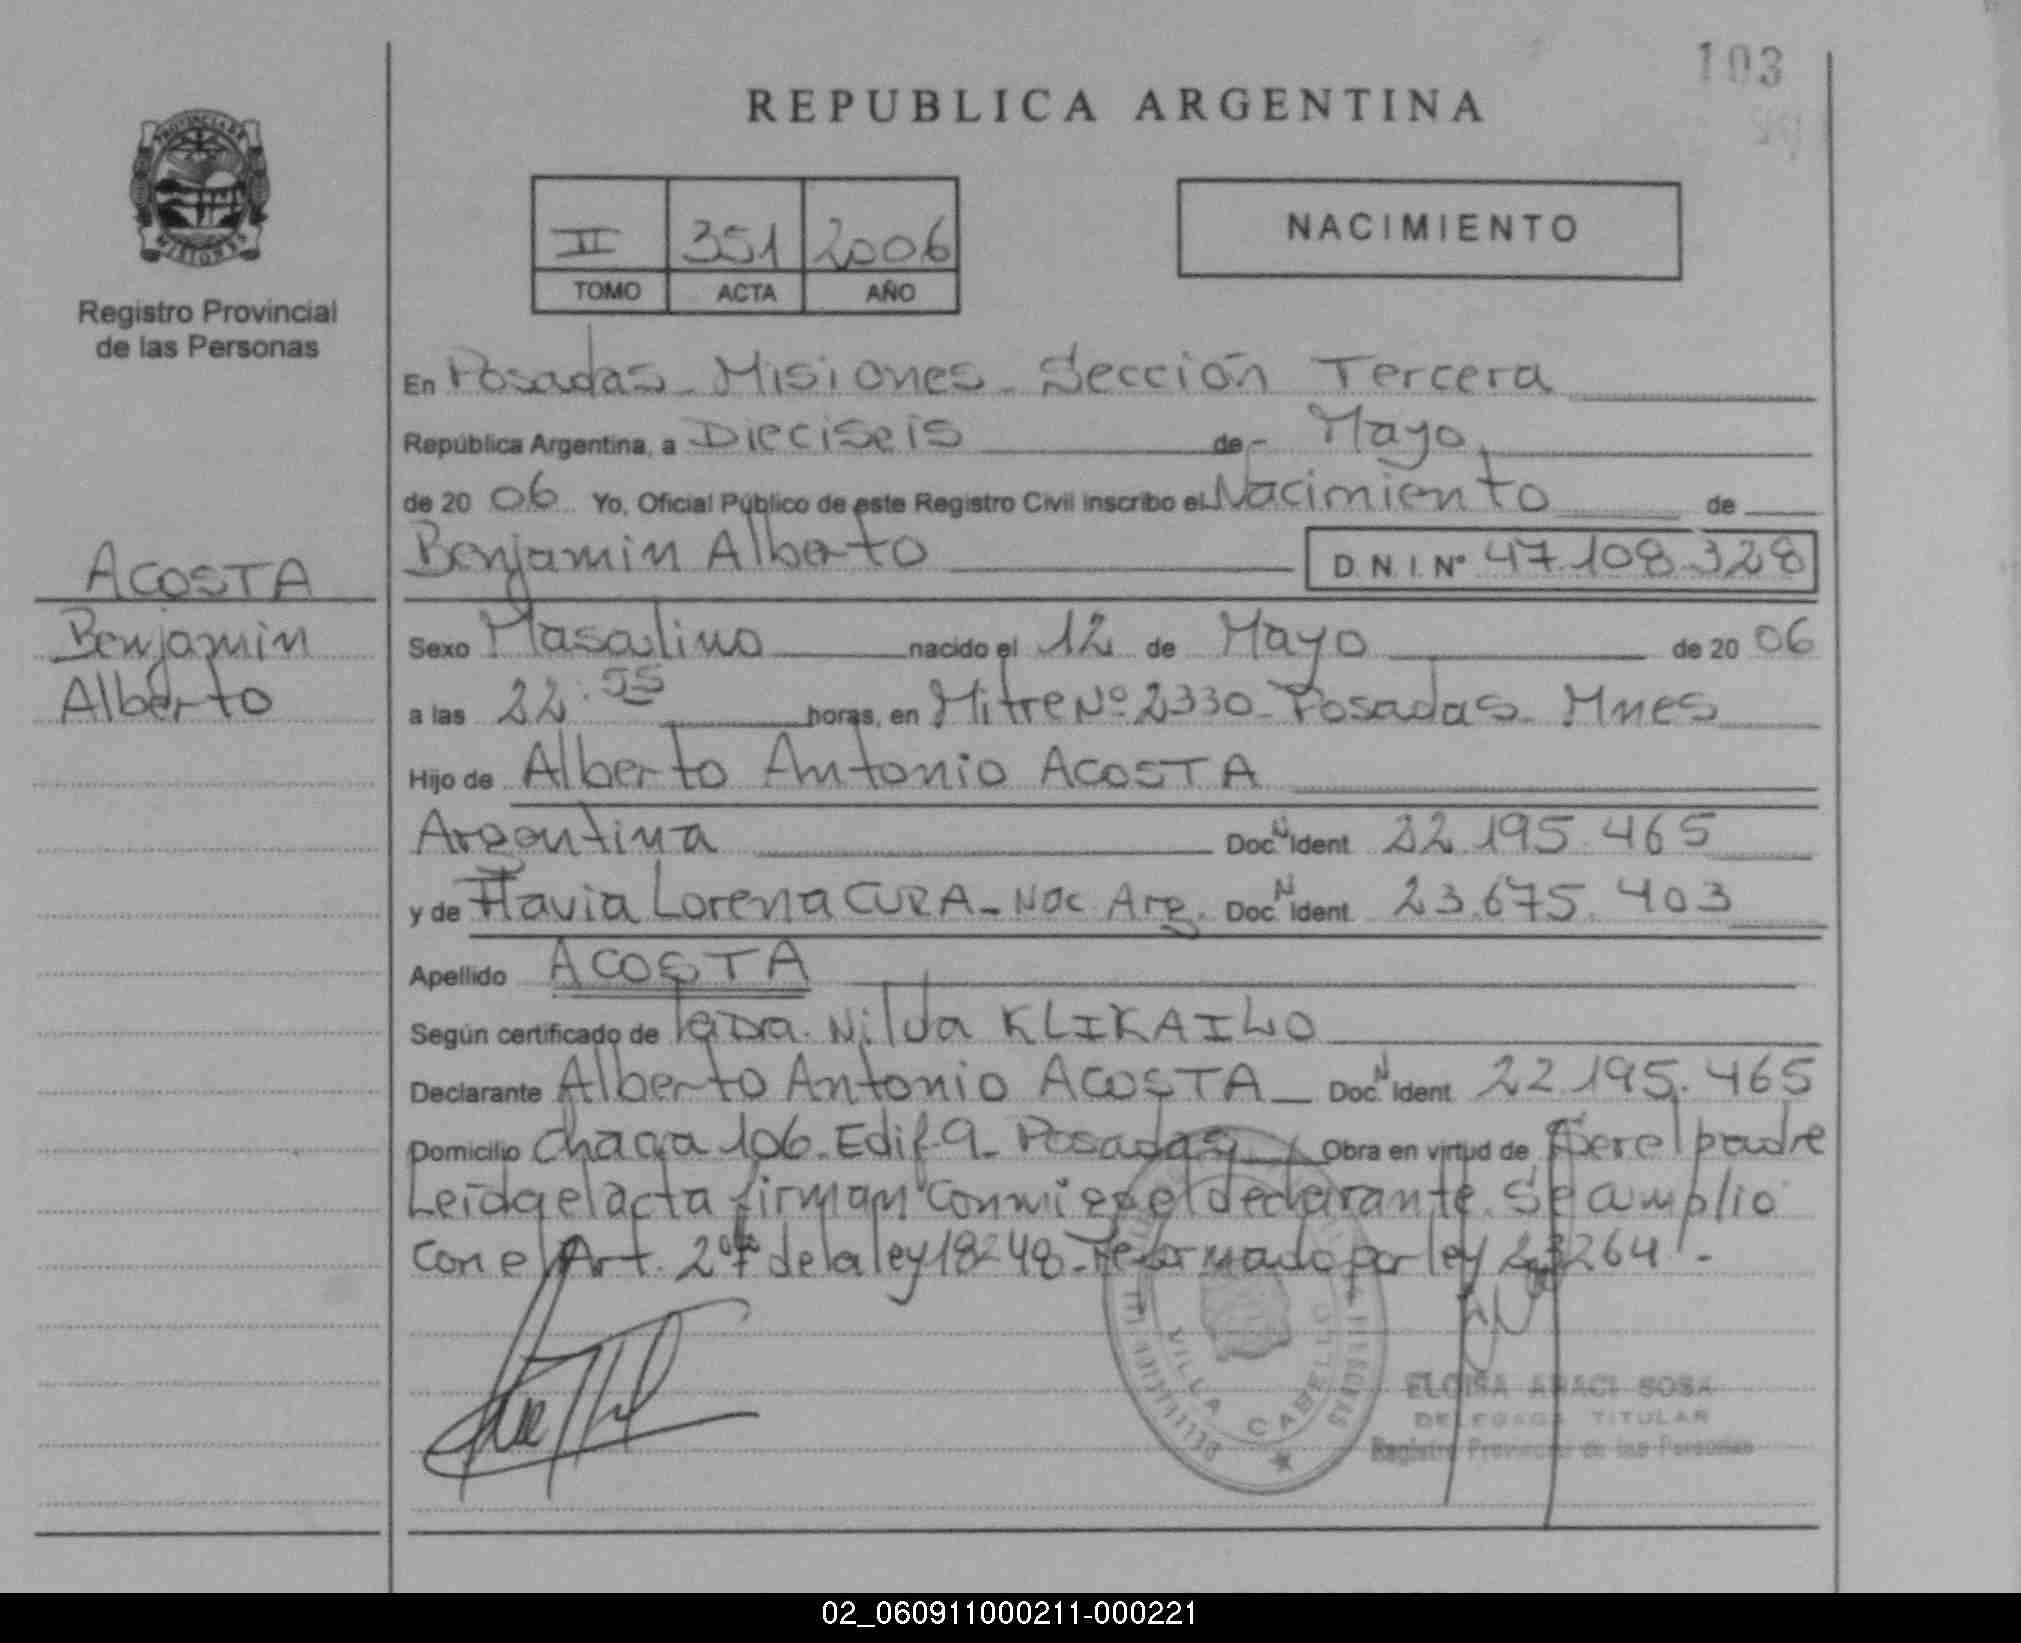 103
REPUBLICA ARGENTINA
PROVINCIA DE
MISIONES
Registro Provincial
de las Personas
II 351 2006
TOMO ACTA AÑO
NACIMIENTO
En Posadas - Misiones - Sección Tercera
República Argentina, a Dieciseis de - Mayo
de 20 06 Yo, Oficial Público de este Registro Civil inscribo el Nacimiento de
ACOSTA
Benjamin
Alberto
Benjamin Alberto D.N.I. Nº 47.108.328
Sexo Masculino nacido el 12 de Mayo de 20 06
a las 22:55 horas, en Mitre Nº 2330 - Posadas - Mnes
Hijo de Alberto Antonio ACOSTA
Argentina Doc. N Ident 22.195.465
y de Flavia Lorena CURA - Nac Arg. Doc. N Ident 23.675.403
Apellido ACOSTA
Según certificado de la Dra. Nilda KLIKAILO
Declarante Alberto Antonio ACOSTA - Doc. N Ident 22.195.465
Domicilio Chaca 106 - Edif. 9 - Posadas Obra en virtud de Ser el padre
Leida el acta firman conmigo el declarante. Se amplio
con el Art. 2º de la ley 18248 - reformado por ley 23264 -
VILLA CABELLO
ELOISA ARACI SOSA
DELEGADA TITULAR
Registro Provincial de las Personas
02_060911000211-000221